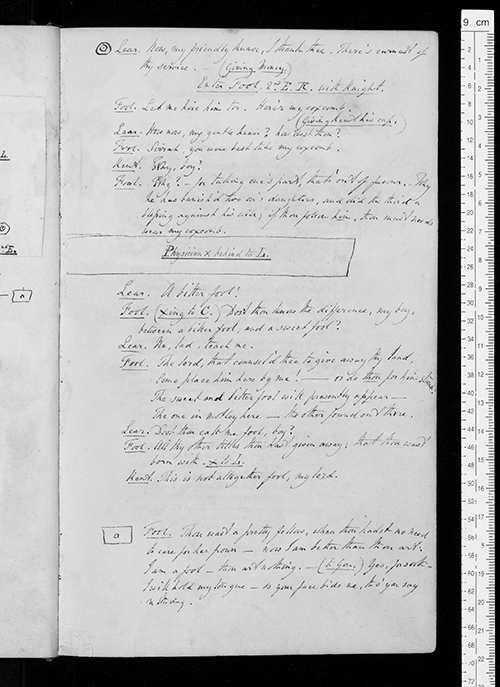 Lear. Now, my friendly knave, I thank thee. There's earnest of
thy service. — (Giving Money.)
Enter Fool. 2nd E. R. with Knight.
Fool. Let me hire him too. Here's my coxcomb.
(Giving Kent his cap.)
Lear. How now, my gentle knave? how dost thou?
Fool. Sirrah, you were best take my coxcomb.
Kent. Why, boy?
Fool. Why? — for taking one's part, that's out of favour. — Why
he has banish'd two o's daughters, and did the third a
blessing against his will; if thou follow him, thou must needs
wear my coxcomb.
Physician X behind to L.
Lear. A bitter fool!
Fool. (Xing to C.) Dost thou know the difference, my boy,
between a bitter fool, and a sweet fool?
Lear. No, lad, teach me.
Fool. The lord, that counsel'd thee to give away thy land,
Come place him here by me! — or do thou for him stand:
The sweet and bitter fool will presently appear —
The one in motley here — the other found out there.
Lear. Dost thou call me fool, boy?
Fool. All thy other titles thou hast given away; that thou wast
born with. X to L.
Kent. This is not altogether fool, my lord.
Fool. Thou wast a pretty fellow, when thou hadst no need
to care for her frown — now I am better than thou art.
I am a fool — thou art nothing. — (to Gon.) Yes, forsooth —
I will hold my tongue — so your face bids me, tho' you say
nothing.
9 cm